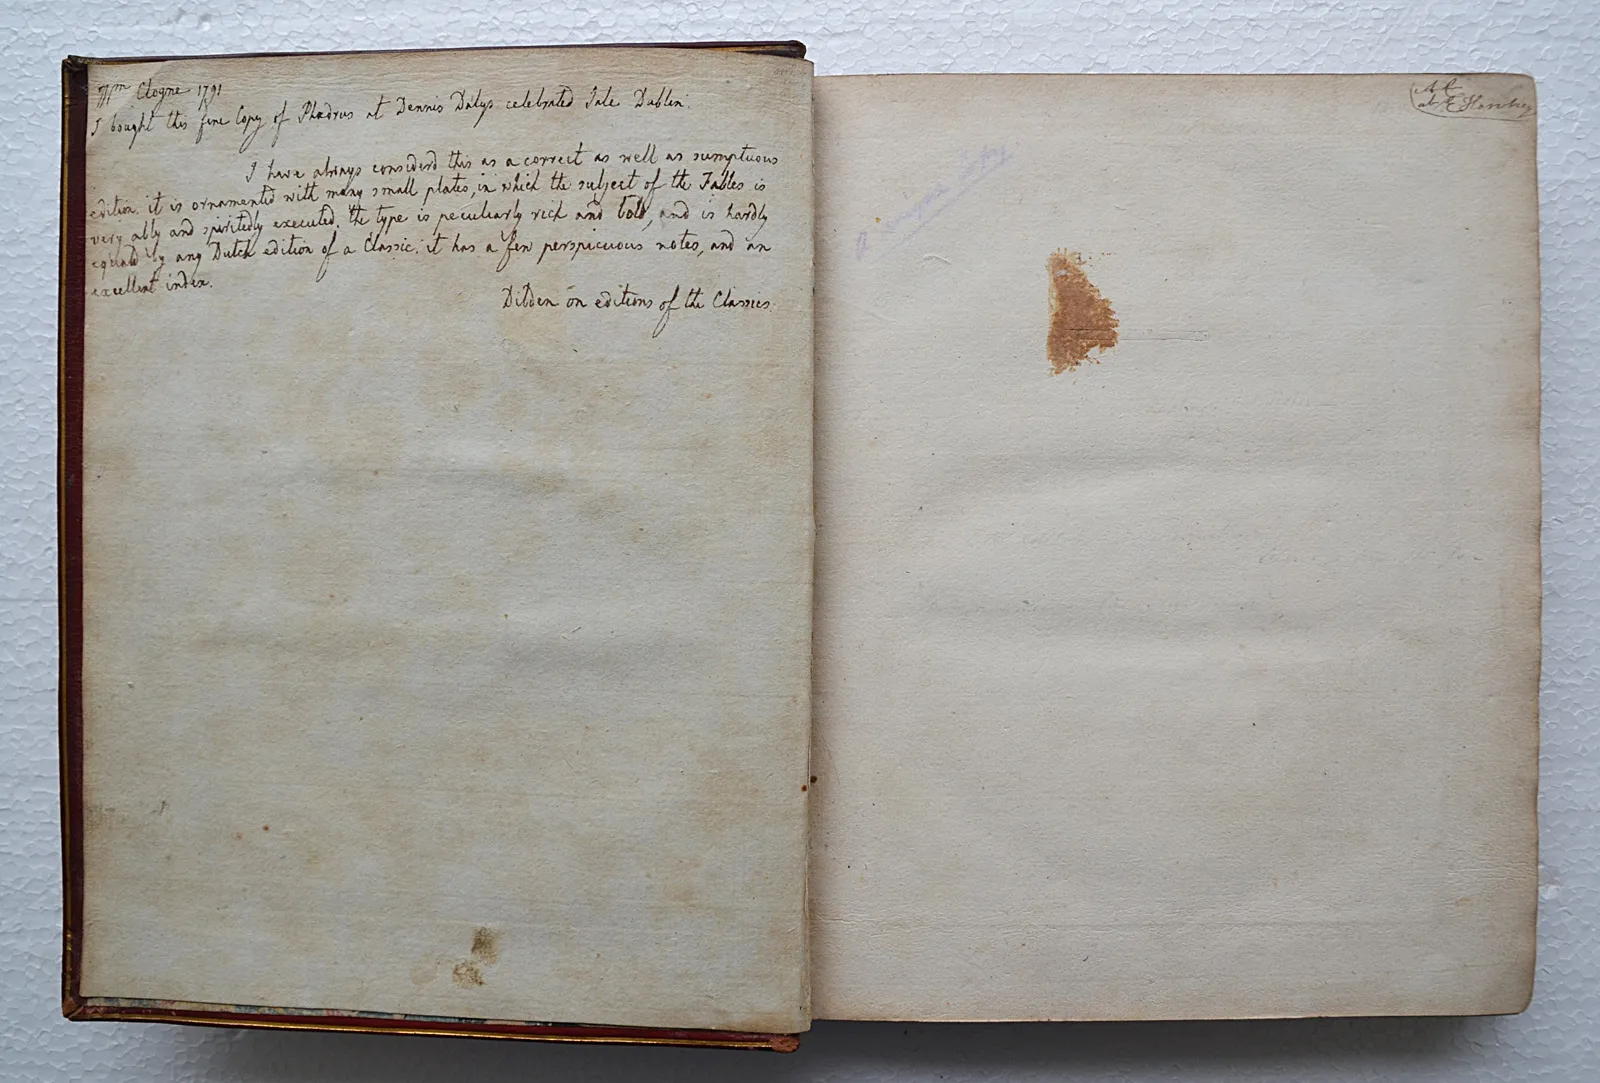 Wm Cloyne 1791
I bought this fine Copy of Phædrus at Dennis Dalys celebrated Sale Dublin.
I have always considerd this as a correct as well as sumptuous
edition. it is ornamented with many small plates, in which the subject of the Fables is
very ably and spiritedly executed. the type is peculiarly rich and bold, and is hardly
equald by any Dutch edition of a Classic. it has a few perspicuous notes, and an
excellent index.
Dibden on editions of the Classics.